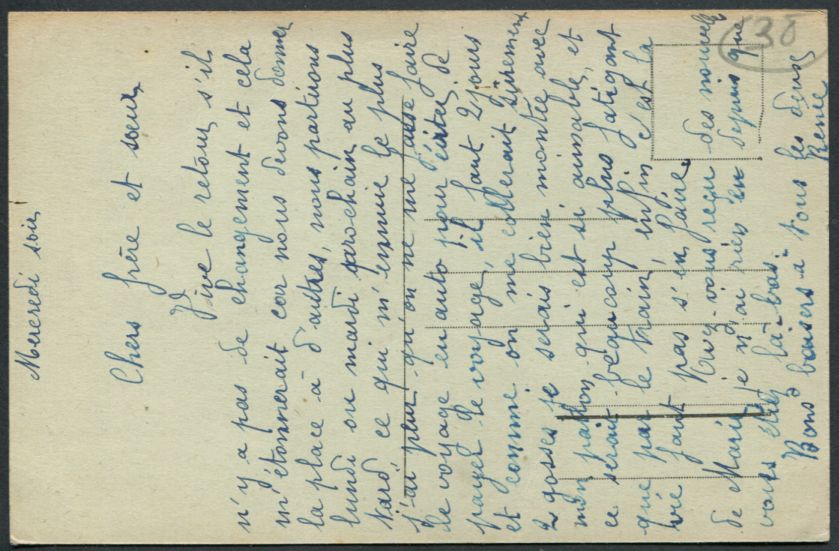 Mercredi soir
Chers frère et sœur
Vive le retour, s'il
n'y a pas de changement et cela
m'étonnerait car nous devons donner
la place à d'autres, nous partirons
lundi ou mardi prochain au plus
tard ce qui m'ennuie le plus
j'ai peur qu'on ne me fasse faire
le voyage en auto pour éviter de
payer le voyage, il faut 2 jours
et comme on me collerait sûrement
2 gosses je serais bien montée avec
mon patron qui est si aimable, et
ce serait beaucoup plus fatigant
que par le train, enfin c'est la
vie faut pas s'en faire.
Avez-vous reçu des nouvelles
de Marie je n'ai rien eu depuis que
vous étiez là-bas.
Bons baisers à tous les deux
Renée
38